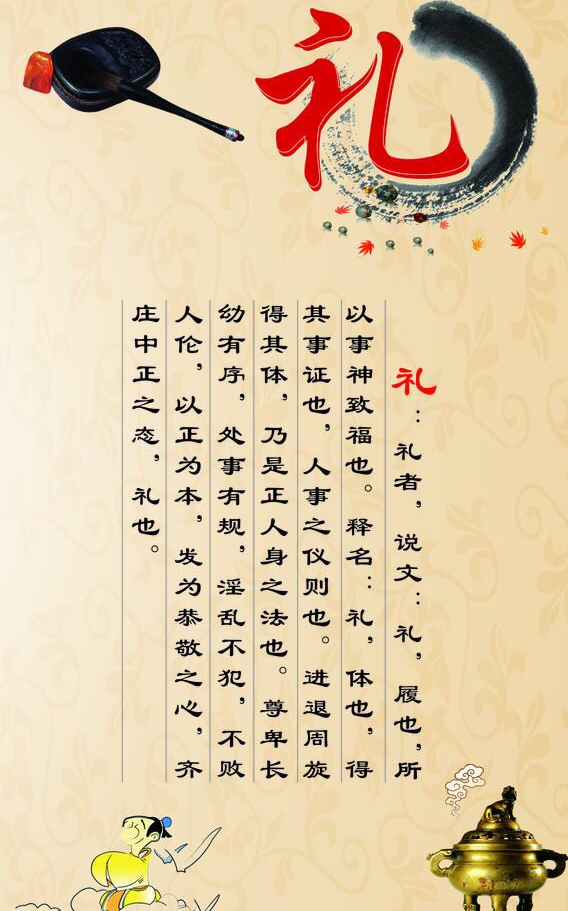 礼
礼：礼者，说文：礼，履也，所
以事神致福也。释名：礼，体也，得
其事证也，人事之仪则也。进退周旋
得其体，乃是正人身之法也。尊卑长
幼有序，处事有规，淫乱不犯，不败
人伦，以正为本，发为恭敬之心，齐
庄中正之态，礼也。